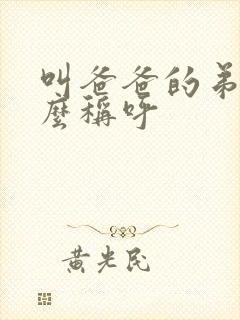 叫爸爸的弟
麼稱呼
黄光民